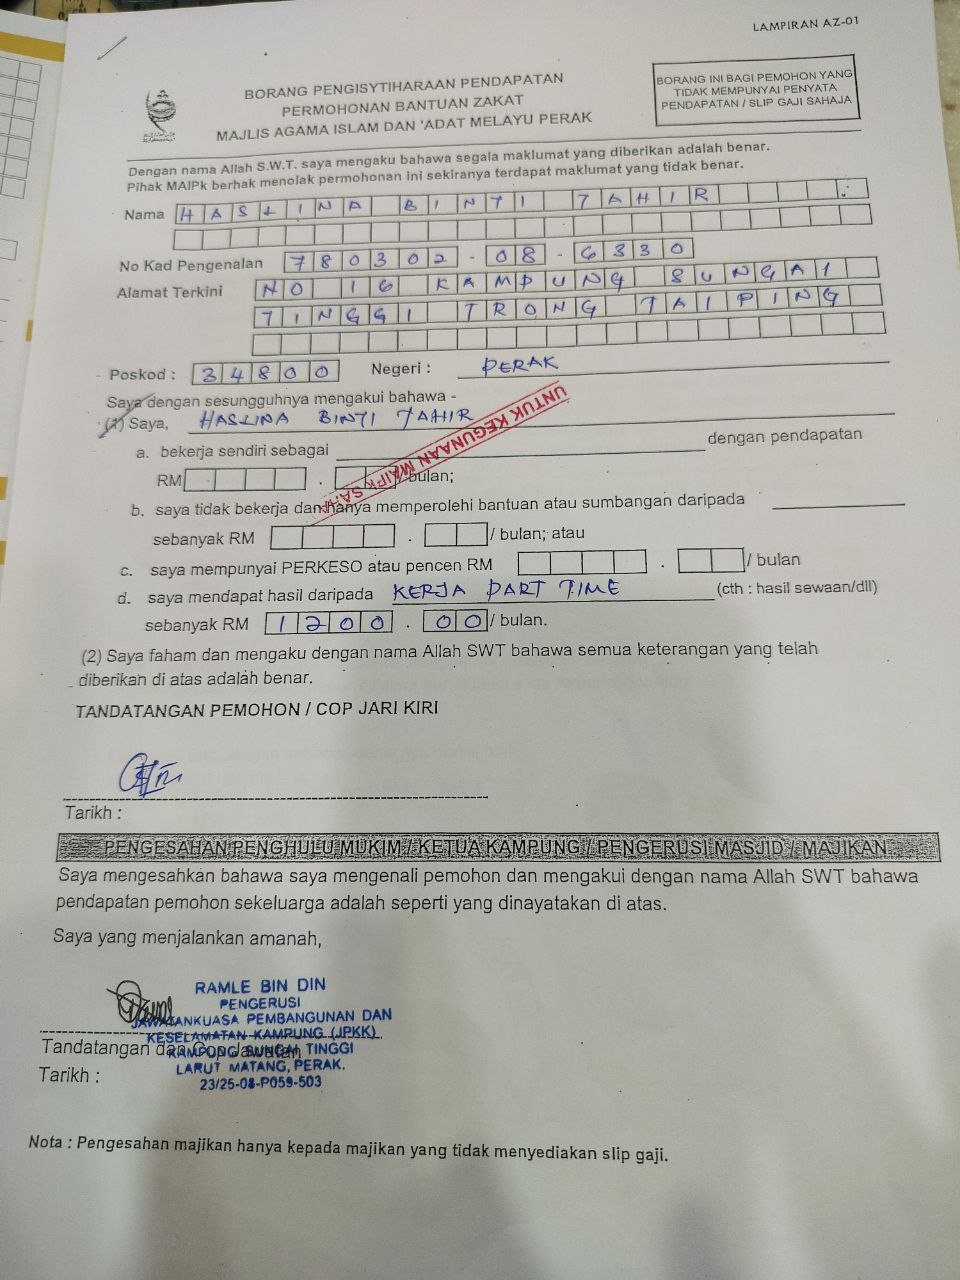 LAMPIRAN AZ-01
BORANG PENGISYTIHARAAN PENDAPATAN
PERMOHONAN BANTUAN ZAKAT
MAJLIS AGAMA ISLAM DAN 'ADAT MELAYU PERAK
BORANG INI BAGI PEMOHON YANG
TIDAK MEMPUNYAI PENYATA
PENDAPATAN / SLIP GAJI SAHAJA
Dengan nama Allah S.W.T. saya mengaku bahawa segala maklumat yang diberikan adalah benar.
Pihak MAIPk berhak menolak permohonan ini sekiranya terdapat maklumat yang tidak benar.
Nama HASLINA BINTI TAHIR
No Kad Pengenalan 780302 - 08 - 6330
Alamat Terkini NO 16 KAMPUNG SUNGAI
TINGGI TRONG TAIPING
Poskod : 34800 Negeri : PERAK
Saya dengan sesungguhnya mengakui bahawa -
(1) Saya, HASLINA BINTI TAHIR
UNTUK KEGUNAAN MAIPK SAHAJA
a. bekerja sendiri sebagai dengan pendapatan
RM . / bulan;
b. saya tidak bekerja dan hanya memperolehi bantuan atau sumbangan daripada
sebanyak RM . / bulan; atau
c. saya mempunyai PERKESO atau pencen RM . / bulan
d. saya mendapat hasil daripada KERJA PART TIME (cth : hasil sewaan/dll)
sebanyak RM 1200 . 00 / bulan.
(2) Saya faham dan mengaku dengan nama Allah SWT bahawa semua keterangan yang telah
diberikan di atas adalah benar.
TANDATANGAN PEMOHON / COP JARI KIRI
Tarikh :
PENGESAHAN PENGHULU MUKIM / KETUA KAMPUNG / PENGERUSI MASJID / MAJIKAN
Saya mengesahkan bahawa saya mengenali pemohon dan mengakui dengan nama Allah SWT bahawa
pendapatan pemohon sekeluarga adalah seperti yang dinayatakan di atas.
Saya yang menjalankan amanah,
RAMLE BIN DIN
PENGERUSI
JAWATANKUASA PEMBANGUNAN DAN
KESELAMATAN KAMPUNG (JPKK)
KAMPUNG SUNGAI TINGGI
LARUT MATANG, PERAK.
23/25-08-P059-503
Tandatangan dan Cop Jawatan
Tarikh :
Nota : Pengesahan majikan hanya kepada majikan yang tidak menyediakan slip gaji.